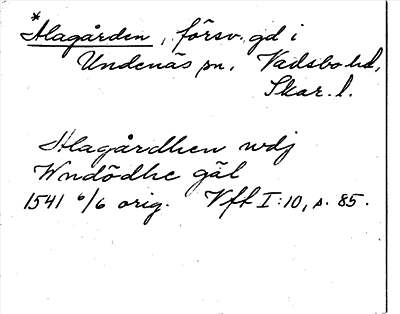 *
Alagården, försv. gd i
Undenäs sn, Vadsbo hd,
Skar. l.
Alagårdhen wdj
Wndödhe gäl
1541 6/6 orig. Vft I:10, s. 85.